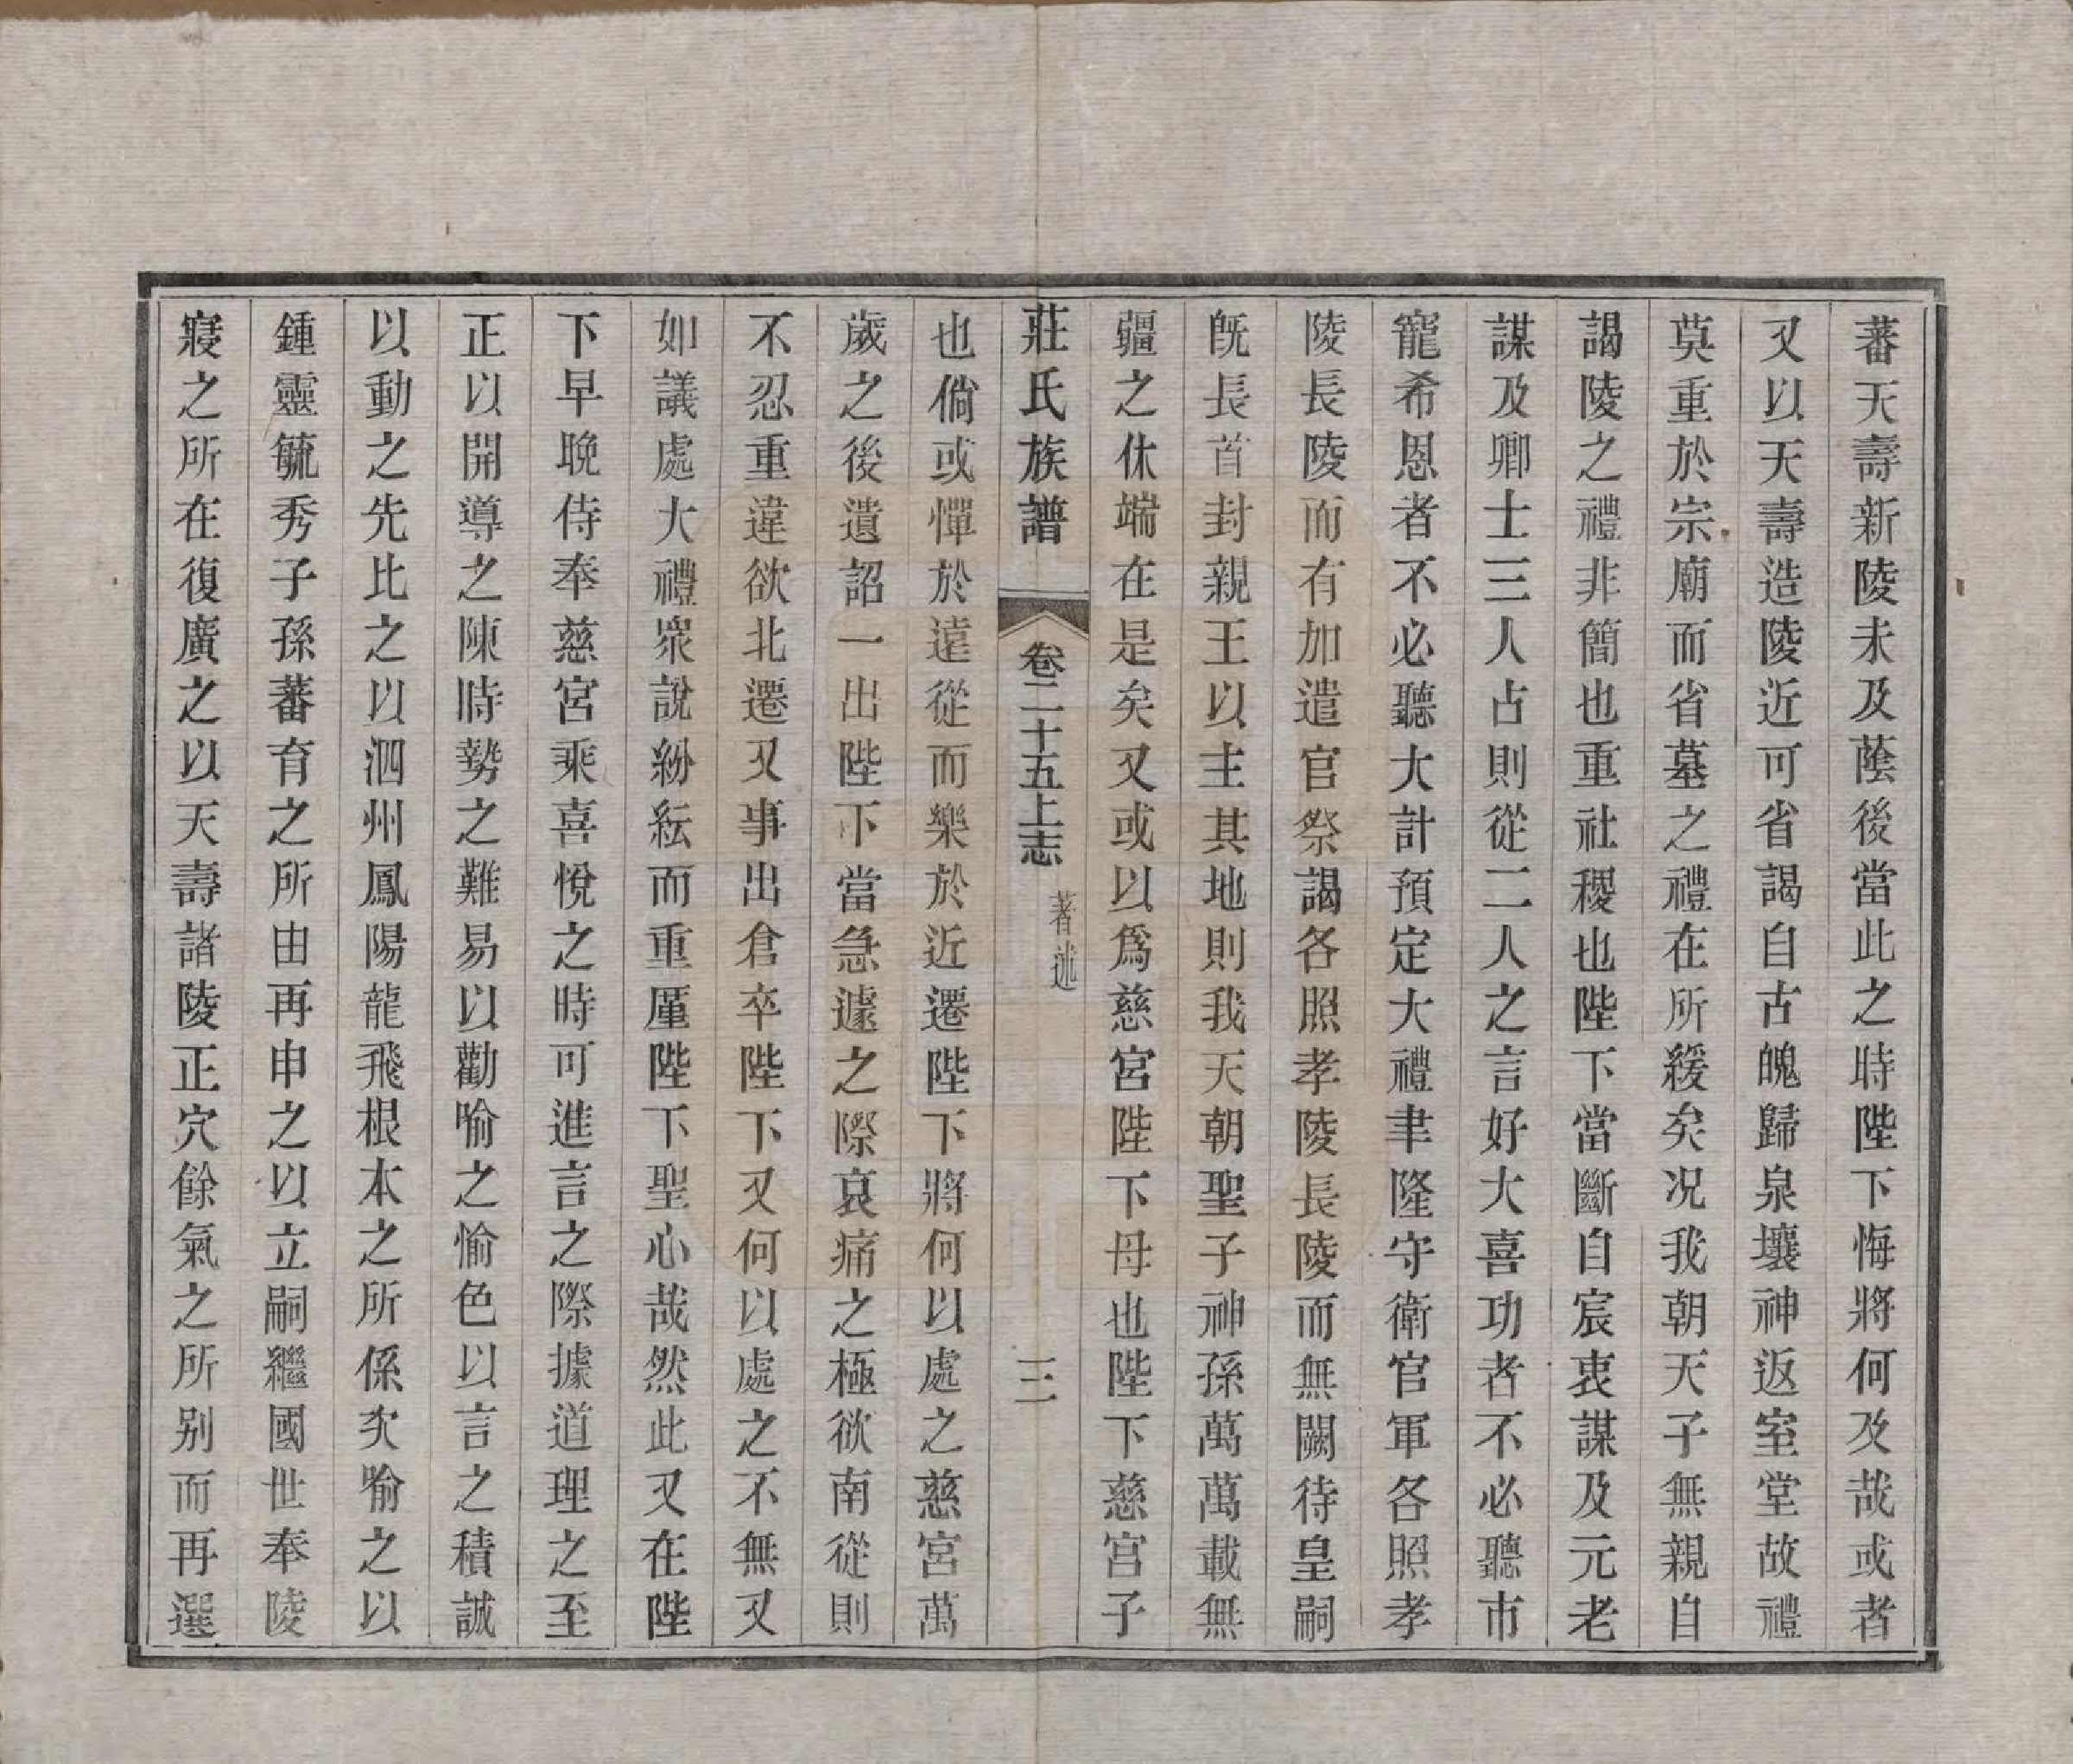 蕃天壽新陵未及蔭後當此之時陛下悔將何及哉或者
又以天壽造陵近可省謁自古魄歸泉壤神返室堂故禮
莫重於宗廟而省墓之禮在所緩矣况我朝天子無親自
謁陵之禮非簡也重社稷也陛下當斷自宸衷謀及元老
謀及卿士三人占則從二人之言好大喜功者不必聽市
寵希恩者不必聽大計預定大禮聿隆守衛官軍各照孝
陵長陵而有加遣官祭謁各照孝陵長陵而無闕待皇嗣
旣長首封親王以主其地則我天朝聖子神孫萬萬載無
疆之休端在是矣又或以爲慈宮陛下母也陛下慈宮子
莊氏族譜 卷二十五上志 著述 三
也倘或憚於遠從而樂於近遷陛下將何以處之慈宮萬
歲之後遺詔一出陛下當急遽之際哀痛之極欲南從則
不忍重違欲北遷又事出倉卒陛下又何以處之不無又
如議處大禮衆說紛紜而重厪陛下聖心哉然此又在陛
下早晚侍奉慈宮乘喜悅之時可進言之際據道理之至
正以開導之陳時勢之難易以勸喻之愉色以言之積誠
以動之先比之以泗州鳳陽龍飛根本之所係次喻之以
鍾靈毓秀子孫蕃育之所由再申之以立嗣繼國世奉陵
寢之所在復廣之以天壽諸陵正穴餘氣之所别而再選